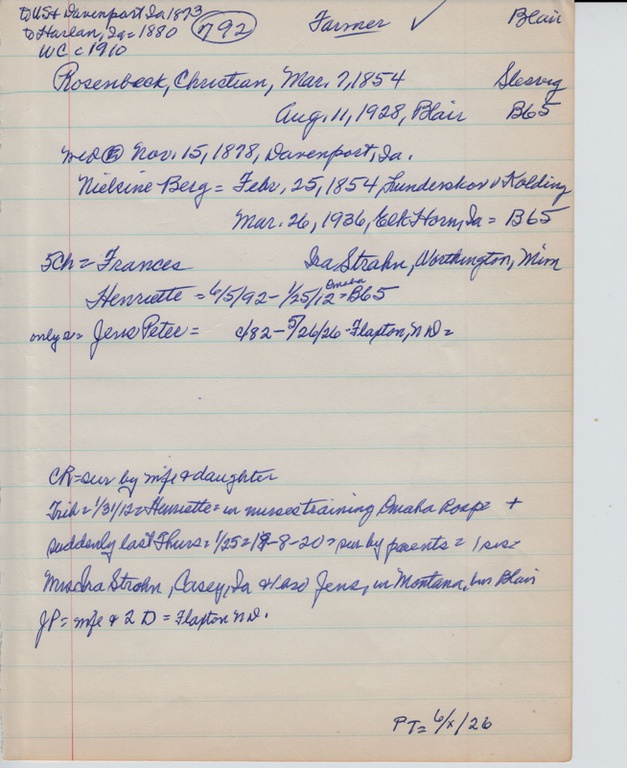 to US + Davenport Ia 1873
to Harlan, Ia = 1880 792 Farmer ✓ Blair
WC c 1910
Rosenbeck, Christian, Mar. 7, 1854 Slesvig
Aug. 11, 1928, Blair B65
wed Nov. 15, 1878, Davenport, Ia.
Nielsine Berg = Febr. 25, 1854, Lunderskov v Kolding
Mar. 26, 1936, Elk Horn, Ia = B65
5 Ch = Frances Ira Strahn, Worthington, Minn
Omaha
Henriette = 6/5/92 - 1/25/12 = B65
only s = Jens Peter = c/82 - 5/26/26 - Flaxton, ND =
CR = sur by wife & daughter
Trib = 1/31/12 = Henriette = in nurses training Omaha Hosp = +
suddenly last Thurs = 1/25 = 19-8-20 = sur by parents = 1 sis =
Mrs Ira Strahn, Casey, Ia & 1 bro Jens, in Montana, bur Blair
JP = wife & 2 D = Flaxton ND.
PT = 6/x/26